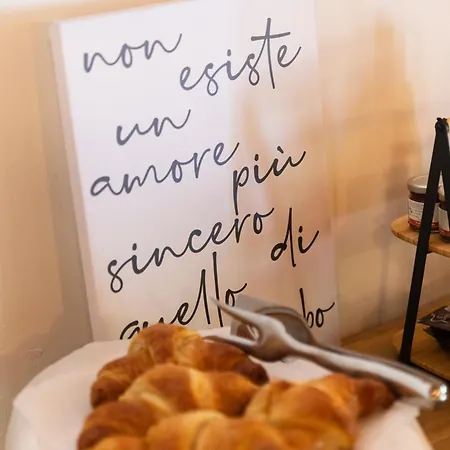 non
esiste
un
amore
più
sincero
di
quello